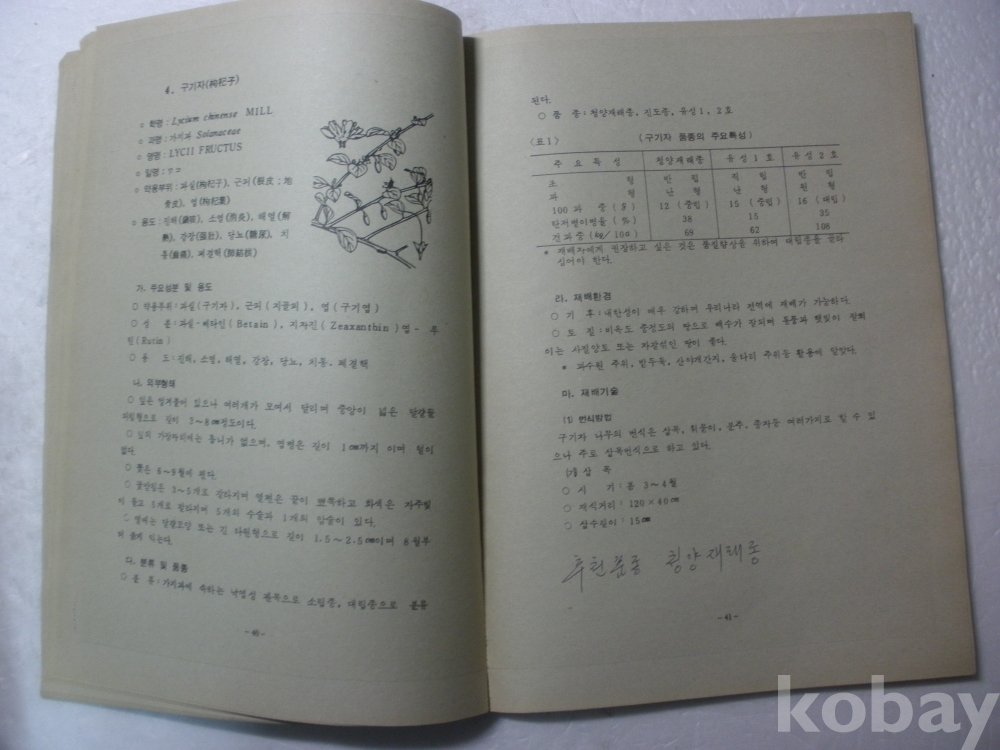 4. 구기자(枸杞子)
○ 학명 : Lycium chinense MILL
○ 과명 : 가지과 Solanaceae
○ 영명 : LYCII FRUCTUS
○ 일명 : クコ
○ 약용부위 : 과실(枸杞子), 근피(根皮 ; 地
骨皮), 엽(枸杞葉)
○ 용도 : 진해, 소염(消炎), 해열(解
熱), 강장(强壯), 당뇨(糖尿), 치
통(齒痛), 폐결핵(肺結核)
가. 주요성분 및 용도
○ 약용부위 : 과실(구기자), 근피(지골피), 엽(구기엽)
○ 성 분 : 과실-베타인(Betain), 지자진(Zeaxanthin) 엽- 루
틴(Rutin)
○ 용 도 : 진해, 소염, 해열, 강장, 당뇨, 치통, 폐결핵
나. 외부형태
○ 잎은 있으나 여러개가 모여서 달리며 중앙이 넓은 달걀꼴
피침형으로 길이 3~8㎝정도이다.
○ 잎의 가장자리에는 톱니가 없으며, 엽병은 길이 1㎝까지 이며 털이
없다.
○ 꽃은 6~9월에 핀다.
○ 꽃받침은 3~5개로 갈라지며 열편은 끝이 뾰쪽하고 화색은 자주빛
이 돌고 5개로 갈라지며 5개의 수술과 1개의 암술이 있다.
○ 열매는 달걀모양 또는 긴 타원형으로 길이 1.5~2.5㎝이며 8월부
터 붉게 익는다.
다. 분류 및 품종
○ 분 류 : 가지과에 속하는 낙엽성 관목으로 소립종, 대립종으로 분류
-40-
된다.
○ 품 종 : 청양재래종, 진도종, 유성1, 2호
〈표1〉 (구기자 품종의 주요특성)
주 요 특 성 청양재래종 유 성 1 호 유 성 2 호
초 형 반 립 직 립 반 립
과 형 난 형 난 형 원 형
100과 중 (g) 12 (중립) 15 (중립) 16 (대립)
탄저병이병율 (%) 38 15 35
건과중 (kg/10a) 69 62 108
* 재배자에게 권장하고 싶은 것은 품질향상을 위하여 대립종을 골라
심어야 한다.
라. 재배환경
○ 기 후 : 내한성이 매우 강하며 우리나라 전역에 재배가 가능하다.
○ 토 질 : 비옥도 중정도의 땅으로 배수가 잘되며 통풍과 햇빛이 잘쬐
이는 사질양토 또는 자갈섞인 땅이 좋다.
* 과수원 주위, 밭두둑, 산야개간지, 울타리 주위등 활용에 알맞다.
마. 재배기술
(1) 번식방법
구기자 나무의 번식은 삽목, 휘묻이, 분주, 종자등 여러가지로 할 수 있
으나 주로 삽목번식으로 하고 있다.
(2) 삽 목
○ 시 기 : 봄 3~4월
○ 재식거리 : 120×40㎝
○ 삽수길이 : 15㎝
추천품종 청양재래종
-41-
kobay